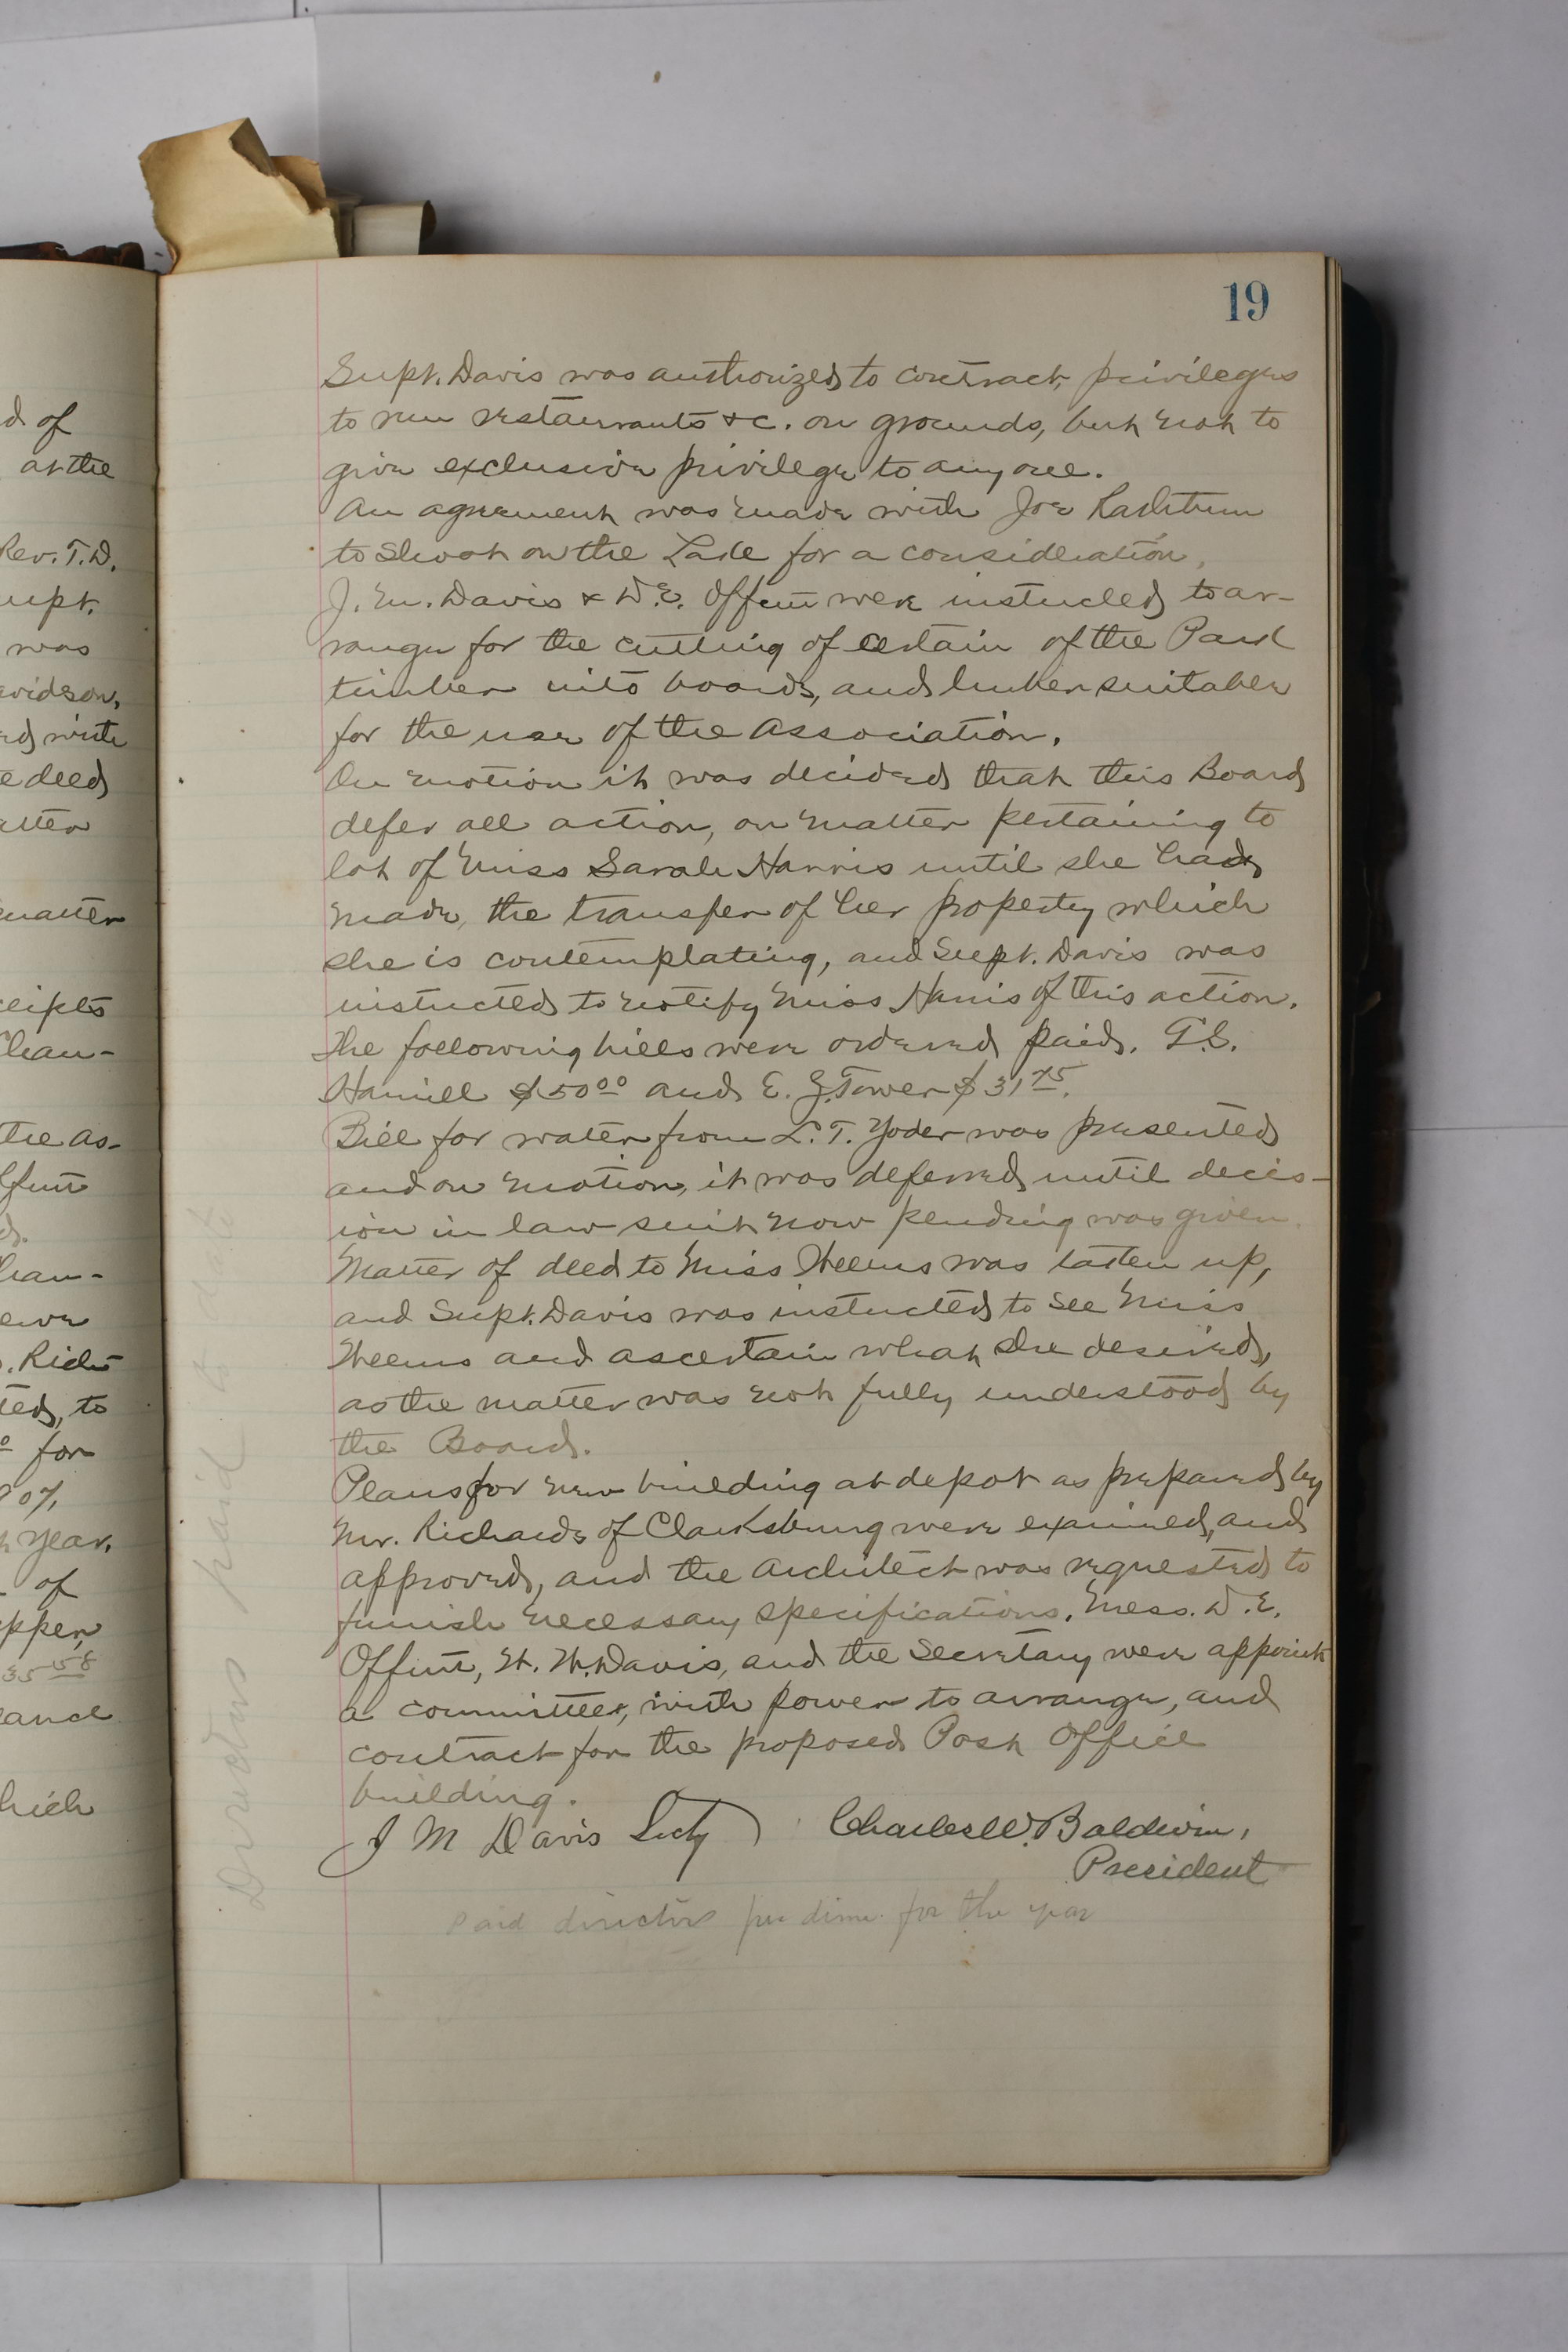 19
Supt. Davis was authorized to contract, privileges
to run restaurants &c. on grounds, but not to
give exclusive privilege to any one.
An agrement was made with Joe
to shoot on the Lake for a consideration,
J. M. Davis & D.E. Offutt were instucted to ar-
range for the cutting of certain of the Park
timber into boards, and lumber suitaber
for the use of the Association.
On motion it was decided that this Board
defer all action, on matter pertaining to
lot of Miss Sarah Harris until she had
made, the transfer of her property which
she is contemplating, and Supt. Davis was
instucted to notify Miss Harris of this action.
The following bills were ordered paid. T.S.
Hamill $50 00 and E. Z. Tower $31 75.
Bill for water from L. T. Yoder was presented
and on motion, it was deferred, until decis-
ion in law suit now pending was given.
Matter of deed to Miss Weems was taken up,
and Supt. Davis was instucted to see Miss
Weems and ascertain what she desired,
as the matter was not fully understood by
the Board.
Plans for new building at depot as prepared by
Mr. Richards of Clarksburg were examined, and
approved, and the Architect was requested to
funish necessary specifications. Mess. D. E.
Offutt, H. W. Davis, and the Secretary were appoint
a committee, with power to arrange, and
contract for the proposed Post Office
building.
J M Davis Secty
Charles W. Baldwin,
President
Paid directors per diem for the year
Directors paid to date
d of
at the
Rev. T. D.
upt.
was
avidson,
ed with
e deed
atter
matter
ceipts
Cham-
the As-
ffutt
d.
ham-
. Rich-
ted, to
for
907,
year,
of
epper,
35 58
ance
hich